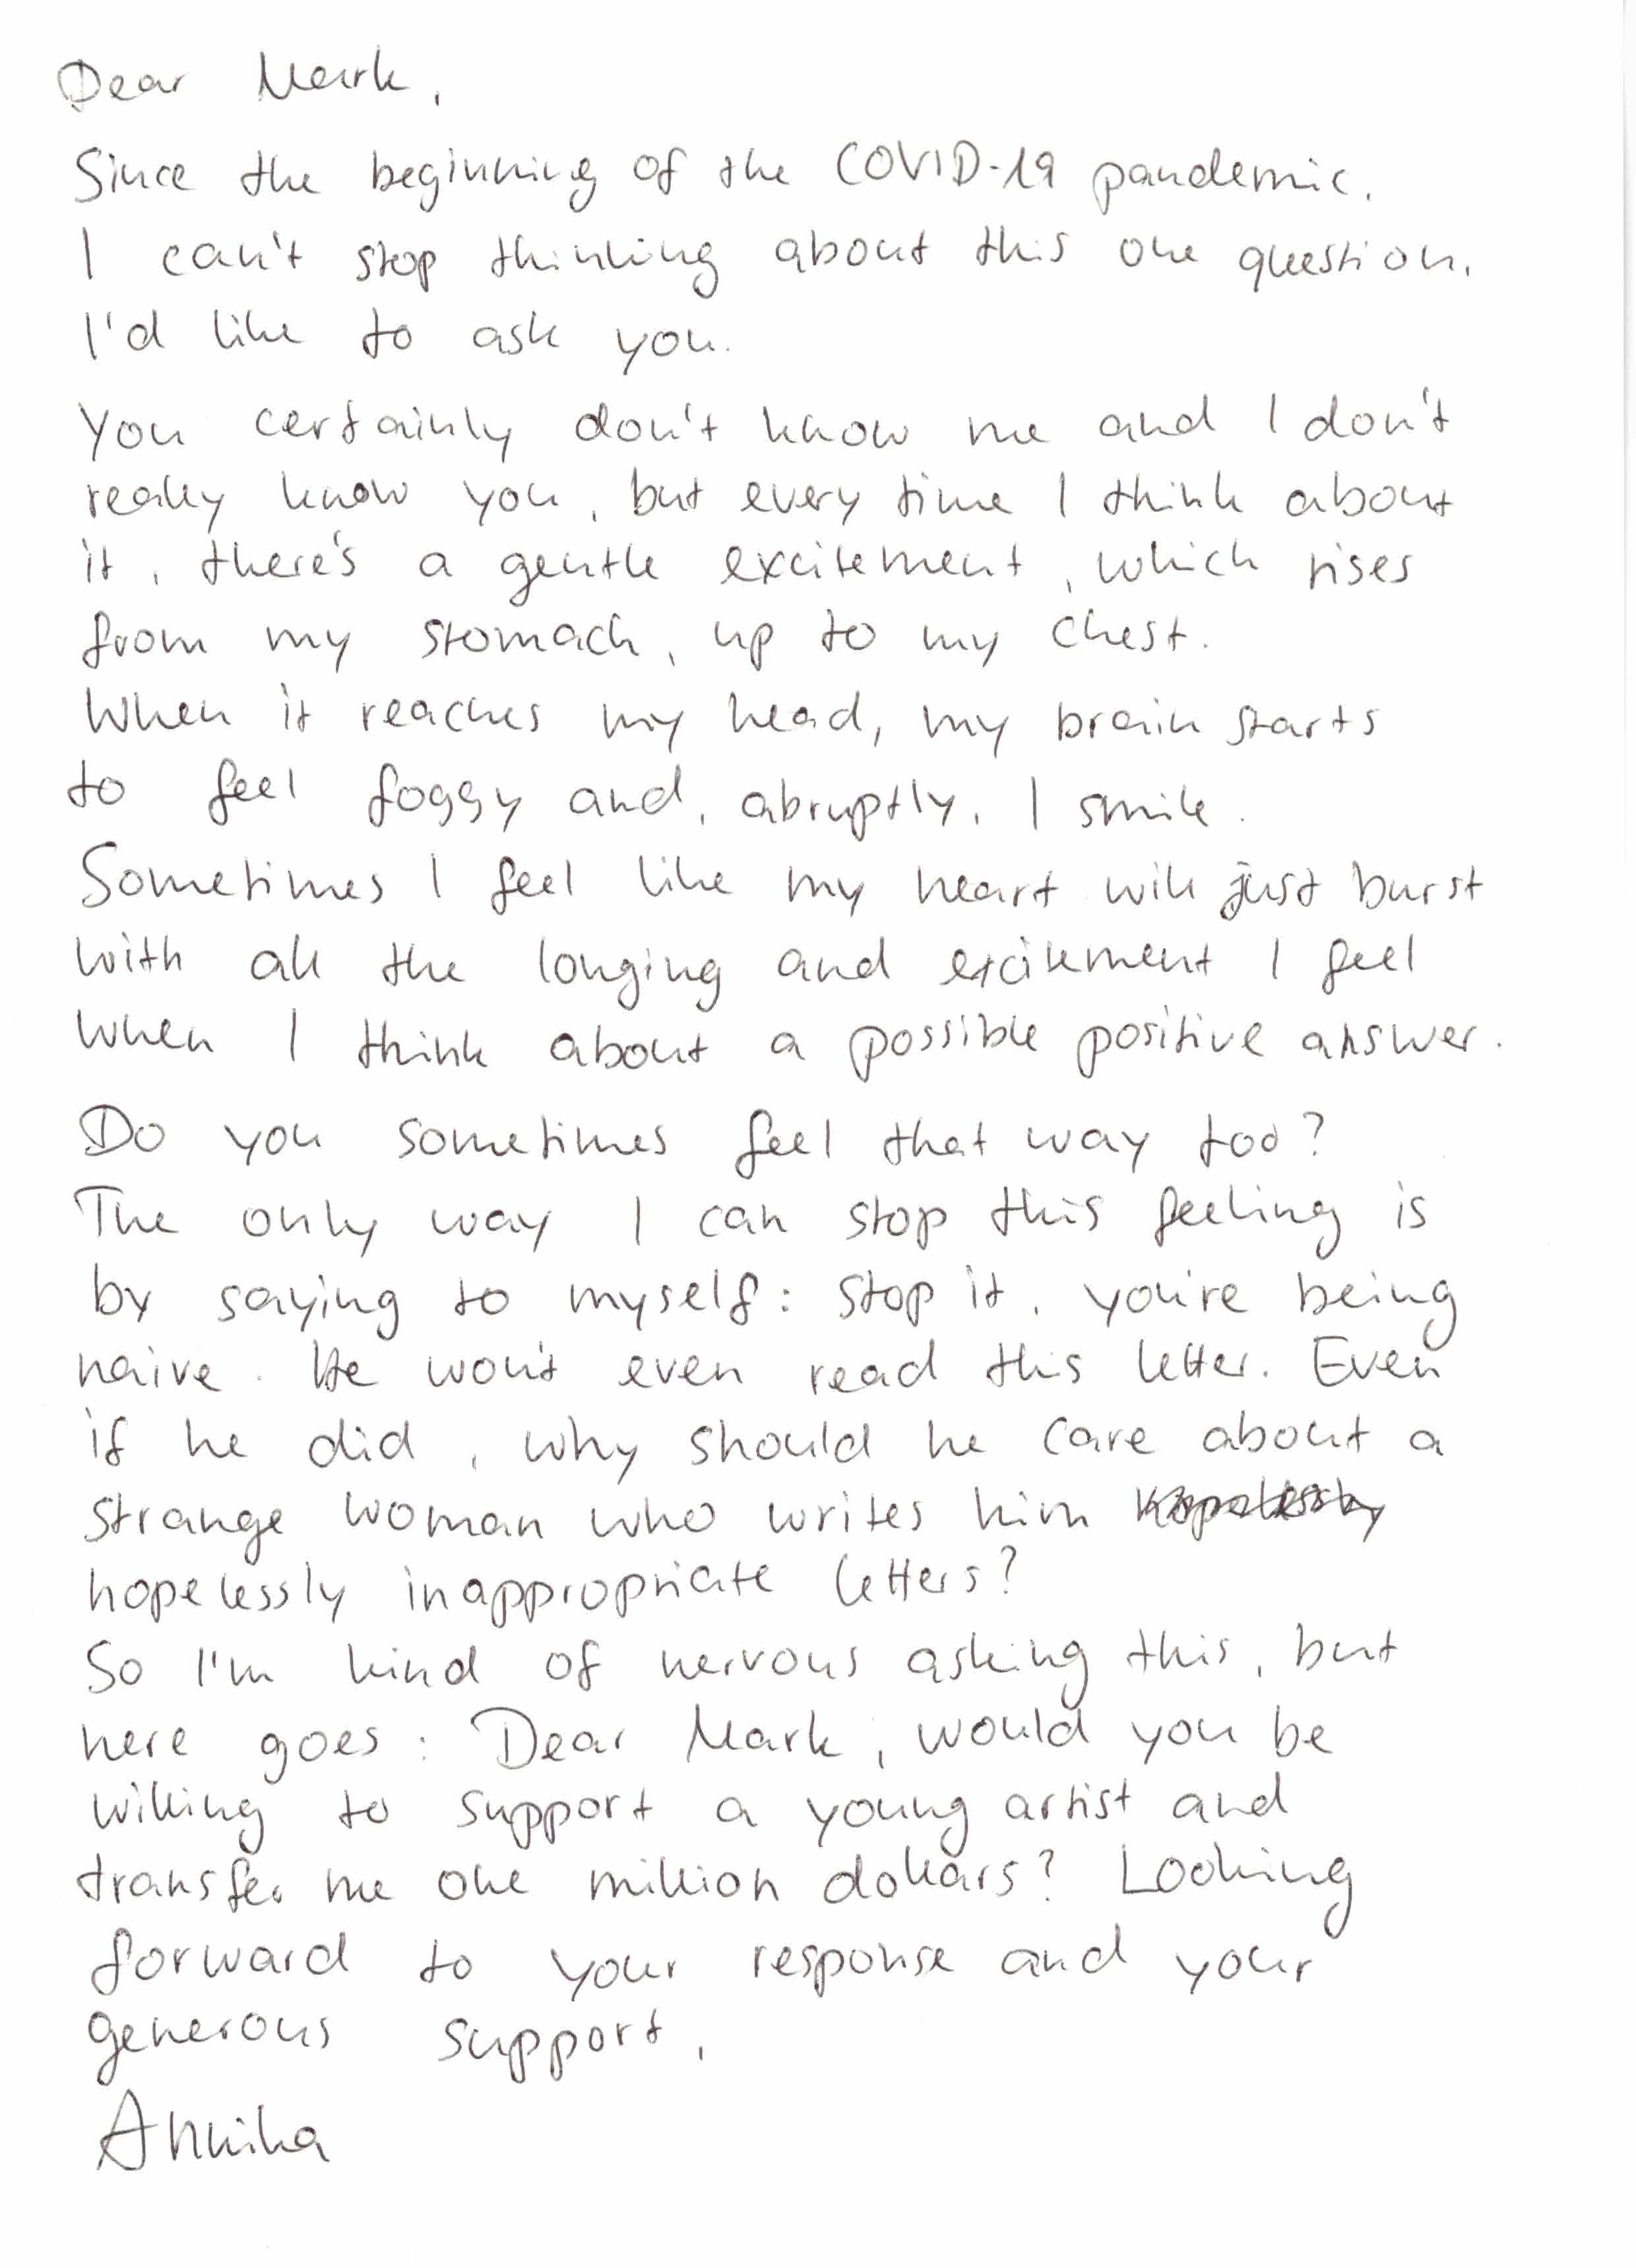 Dear Mark,
Since the beginning of the COVID-19 pandemic,
I can't stop thinking about this one question,
I'd like to ask you.
You certainly don't know me and I don't
really know you, but every time I think about
it, there's a gentle excitement, which rises
from my stomach, up to my chest.
When it reaches my head, my brain starts
to feel foggy and, abruptly, I smile.
Sometimes I feel like my heart will just burst
with all the longing and excitement I feel
when I think about a possible positive answer.
Do you sometimes feel that way too?
The only way I can stop this feeling is
by saying to myself: Stop it, you're being
naive. He won't even read this letter. Even
if he did, why should he care about a
strange woman who writes him
hopelessly inappropriate letters?
So I'm kind of nervous asking this, but
here goes: Dear Mark, would you be
willing to support a young artist and
transfer me one million dollars? Looking
forward to your response and your
generous support,
Annika